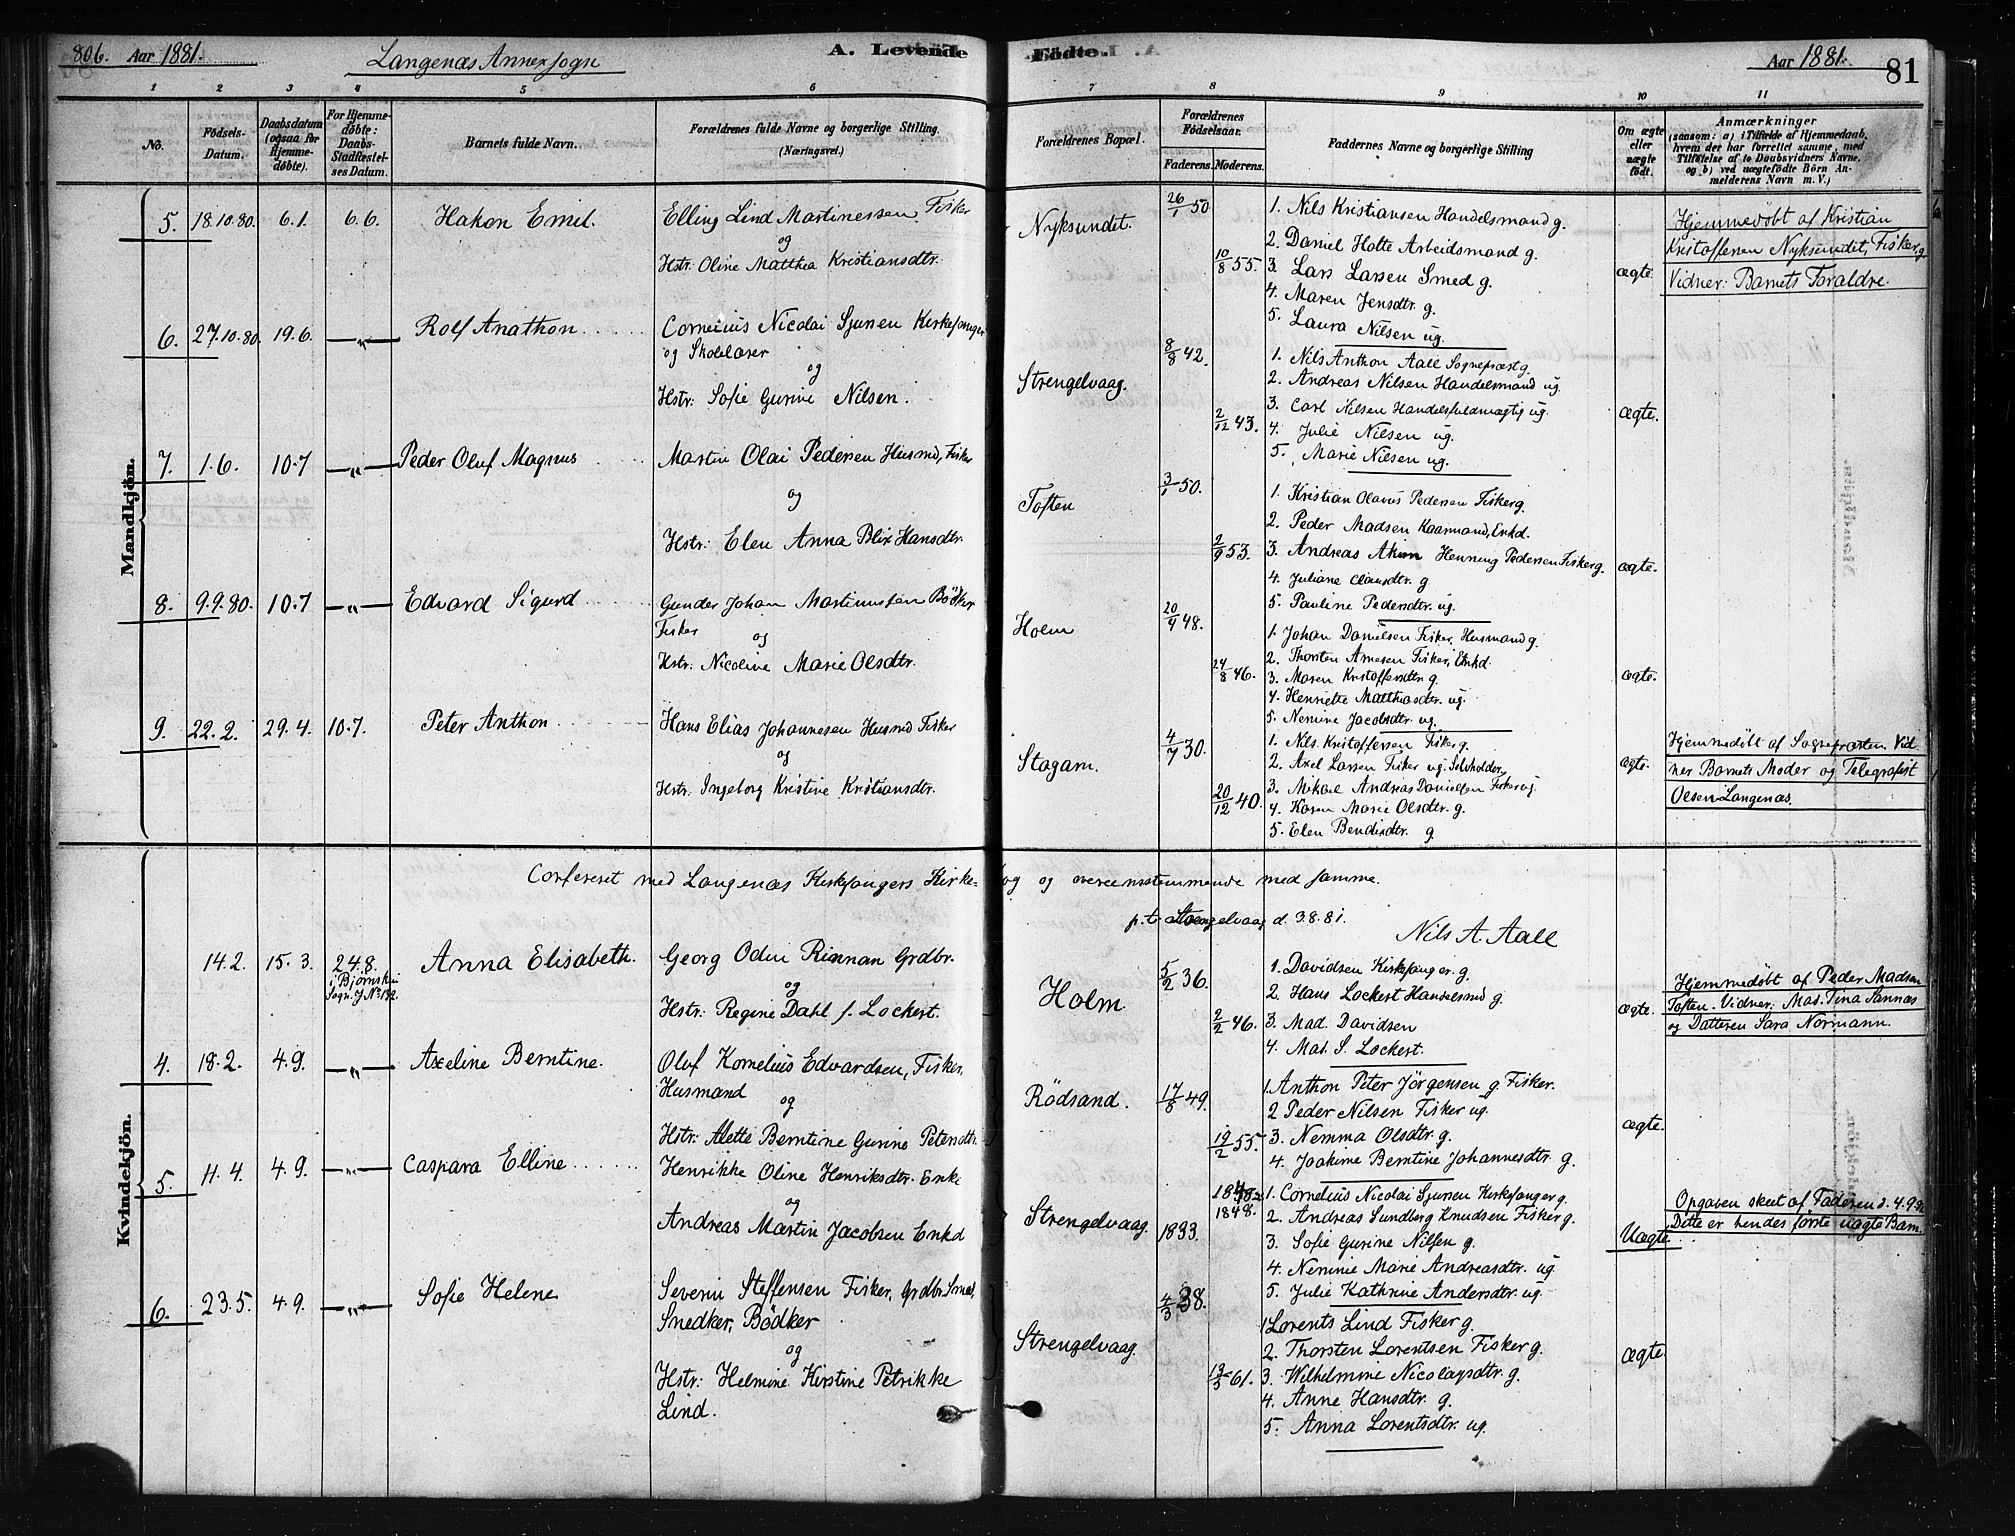 80b. Aar 1881. Langenæs Annexsogn A. Levende Födte. Aar 1881. 81
1 2 3 4 5 6 7 8 9 10 11
No.
Födsels-Datum.
Daabsdatum (ogsaa for Hjemme-döbte).
For Hjemme-döbte: Daabs-Stadfæstel-ses Datum.
Barnets fulde Navn.
Forældrenes fulde Navne og borgerlige Stilling. (Næringsvei.)
Forældrenes Bopæl.
Forældrenes Födselsaar.
Faderens. Moderens.
Faddernes Navne og borgerlige Stilling
Om ægte eller uægte födt.
Anmærkninger
(saasom: a) i Tilfælde af Hjemmedaab,
hvem der har forrettet samme, med
Tilföielse af to Daabsvidners Navne.
og b) ved uægtefödte Börn An-
melderens Navn m. V.)
Mandkjön.
5. 18.10.80. 6.1. 6.6. Hakon Emil. Elling Lind Martinessen Fisker
og
Hstr. Oline Matthea Kristiansdtr.
Nyksundet. 26/1 50 10/8 55.
1. Nils Kristiansen Handelsmand g.
2. Daniel Holte Arbeidsmand g.
3. Lars Larsen Smed g.
4. Maren Jensdtr. g.
5. Laura Nilsen ug.
ægte.
Hjemmedøbt af Kristian
Kristoffersen Nyksundet, Fisker g.
Vidner: Barnets Foraldre.
6. 27.10.80. 19.6. —„— Rolf Anathon Cornelius Nicolai Sjursen Kirkesanger
og Skolelærer
og
Hstr: Sofie Gurine Nilsen.
Strengelvaag. 8/8 42. 2/12 43.
1. Nils Anthon Aall Sognepræst g.
2. Andreas Nilsen Handelsmand ug.
3. Carl Nilsen Handelsfuldmægtig ug.
4. Julie Nilsen ug.
5. Marie Nilsen ug.
ægte.
7. 1.6. 10.7 —„— Peder Oluf Magnus Martin Olai Pedersen Husmd, Fisker
og
Hstr: Elen Anna Blix Hansdtr.
Toften 3/1 50. 2/9 53.
1. Kristian Olavus Pedersen Fisker g.
2. Peder Madsen Kaarmand, Enkd.
3. Andreas Henning Pedersen Fisker g.
4. Juliane Clausdtr. g
5. Pauline Pedersdtr. ug.
ægte.
8. 9.9.80. 10.7 —„— Edvard Sigurd Gunder Johan Martinussen Bödker
Fisker
og
Hstr: Nicoline Marie Olsdtr.
Holm 20/4 48. 24/8 46.
1. Johan Danielsen Fisker, Husmand g.
2. Thorsten Arnesen Fisker, Enkd.
3. Maren Kristoffersdtr g.
4. Henriette Matthiasdtr. ug.
5. Nemine Jacobsdtr ug.
ægte.
9. 22.2. 29.4. 10.7. Peter Anthon Hans Elias Johannesen Husmd Fisker
og
Hstr. Ingeborg Kristine Kristiansdtr.
Stagam. 4/7 30. 20/12 40.
1. Nils Kristoffersen Fisker g.
2. Axel Larsen Fisker ug. Selvholder
3. Mikael Andreas Danielsen Fisker ug.
4. Karen Marie Olsdtr. g.
5. Elen Bendixdtr. g
ægte.
Hjemmedøbt af Sognepræsten Vid-
ner Barnets Moder og Telegrafist
Olsen Langenæs.
Confereret med Langenæs Kirkesangers Kirke-bog og overensstemmende med samme.
p.t. Strengelvaag d. 3.8.81.
Nils A. Aall
Kvindekjön.
14.2. 15.3. 24.8. i Bjørnskin Sogn. J No 132. Anna Elisabeth. Georg Odin Rinnan Grdbr.
og
Hstr: Regine Dahl f. Lockert.
Holm 5/2 36. 2/2 46.
1. Davidsen Kirkesanger. g.
2. Hans Lockert Handelsmd g.
3. Mad. Davidsen
4. Mad. S. Lockert.
ægte.
Hjemmedøbt af Peder Madsen
Toften. Vidner: Mad. Tina Sannæs
og Datteren Sara Normann.
4. 18.2. 4.9. —„— Axeline Berntine. Oluf Kornelius Edvardsen, Fisker,
Husmand
og
Hstr: Alette Berntine Gurine Petersdtr.
Rödsand. 17/8 49. 19/2 55.
1. Anthon Peter Jörgensen g Fisker.
2 Peder Nilsen Fisker ug.
3. Nemma Olsdtr. g.
4. Joakime Berntine Johannesdtr. g.
ægte.
5. 11.4. 4.9. —„— Caspara Elline Henrikke Oline Henriksdtr. Enke
og
Andreas Martin Jacobsen Enkd
Strengelvaag. 1833. 1848.
1. Cornelius Nicolai Sjursen Kirkesanger g.
2. Andreas Sundberg Knudsen Fisker g.
3. Sofie Gurine Nilsen g.
4. Nemmie Marie Andreasdtr. ug
5. Julie Kathrine Andersdtr. ug.
Uægte
Opgaven skeet af Faderen d. 4.9.81
Dette er hendes første uægte Barn.
6. 23.5. 4.9. —„— Sofie Helene Severin Steffensen Fisker, Grdbr. Smed,
Snedker, Bödker
og
Hstr: Helmine Kirstine Petrikke
Lind.
Strengelvaag. 4/3 38. 13/3 61.
1 Lorents Lind Fisker g.
2. Thorsten Lorentsen Fisker g.
3. Wilhelmine Nicolaysdtr. g.
4. Anne Hansdtr. g.
5. Anna Lorentsdtr. ug.
ægte